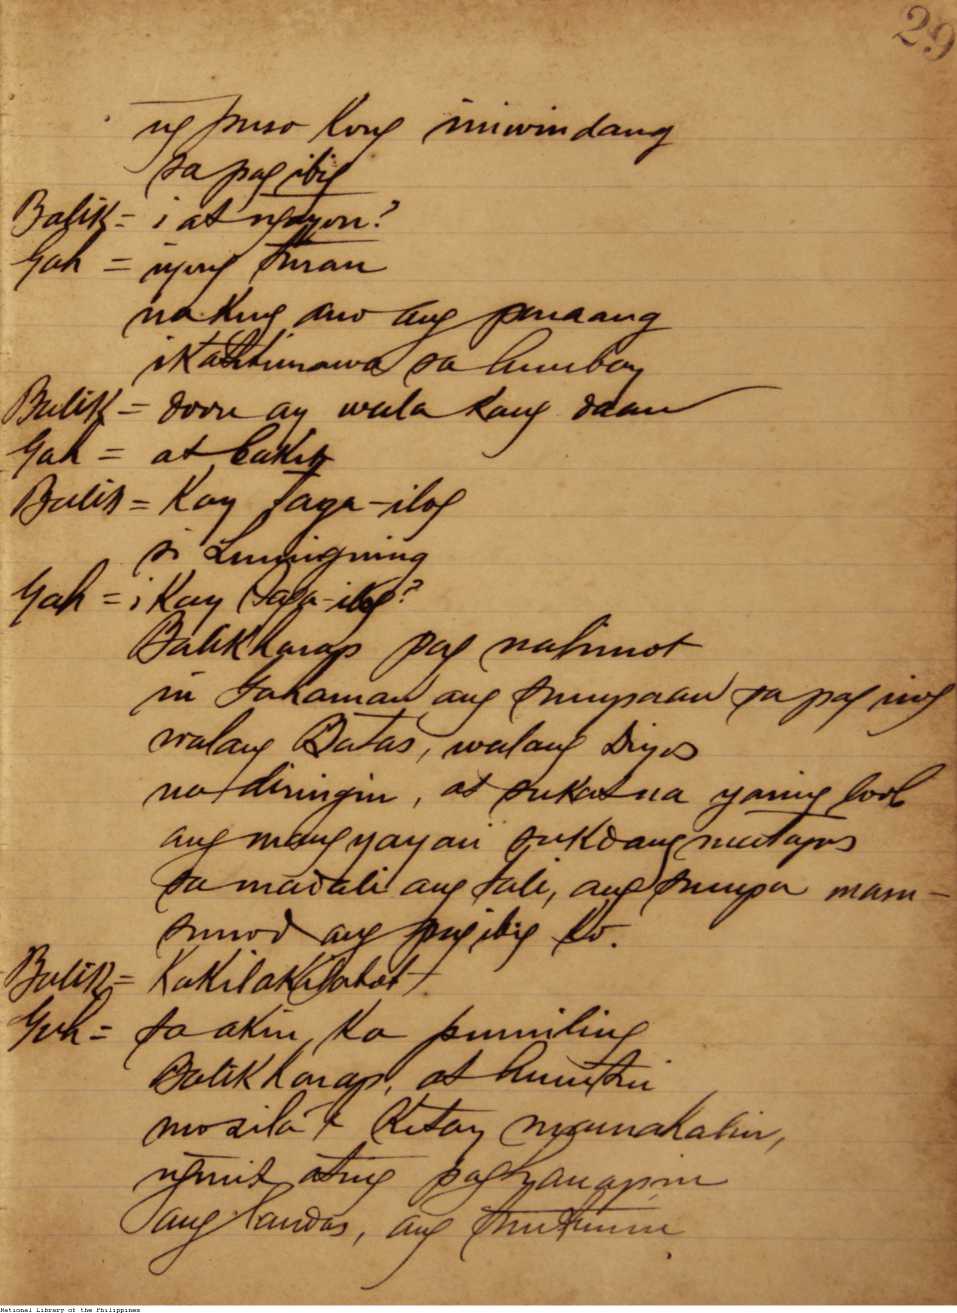 29
ng puso kong iniwindang
sa pag ibig
Balik = ¿ at ngayon?
Gah = iyong turan
na kung ano ang paraang
ikatitimawa sa lumbay
Balik = doon ay wala kang daan
Gah = at bakit
Balik = Kay Taga-ilog
si Luningning
Gah = ¿ Kay Taga-ilog?
Balikharap pag nalimot
ni Gahaman ang sumpaan sa pag irog
walang Batas, walang Diyos
na diringin, at sukat na yaring loob
ang mangyayari sukdang matapos
sa madali ang tali, ang sumpa masu-
sunod ang pag ibig ko.
Balik = Kakilakilabot
Gah = sa akin ka pumiling
Balikharap, at huntai
mo sila't kitay mamakalin,
nguni't ating paghanapin
ang landas, ang tutuntunin
National Library of the Philippines